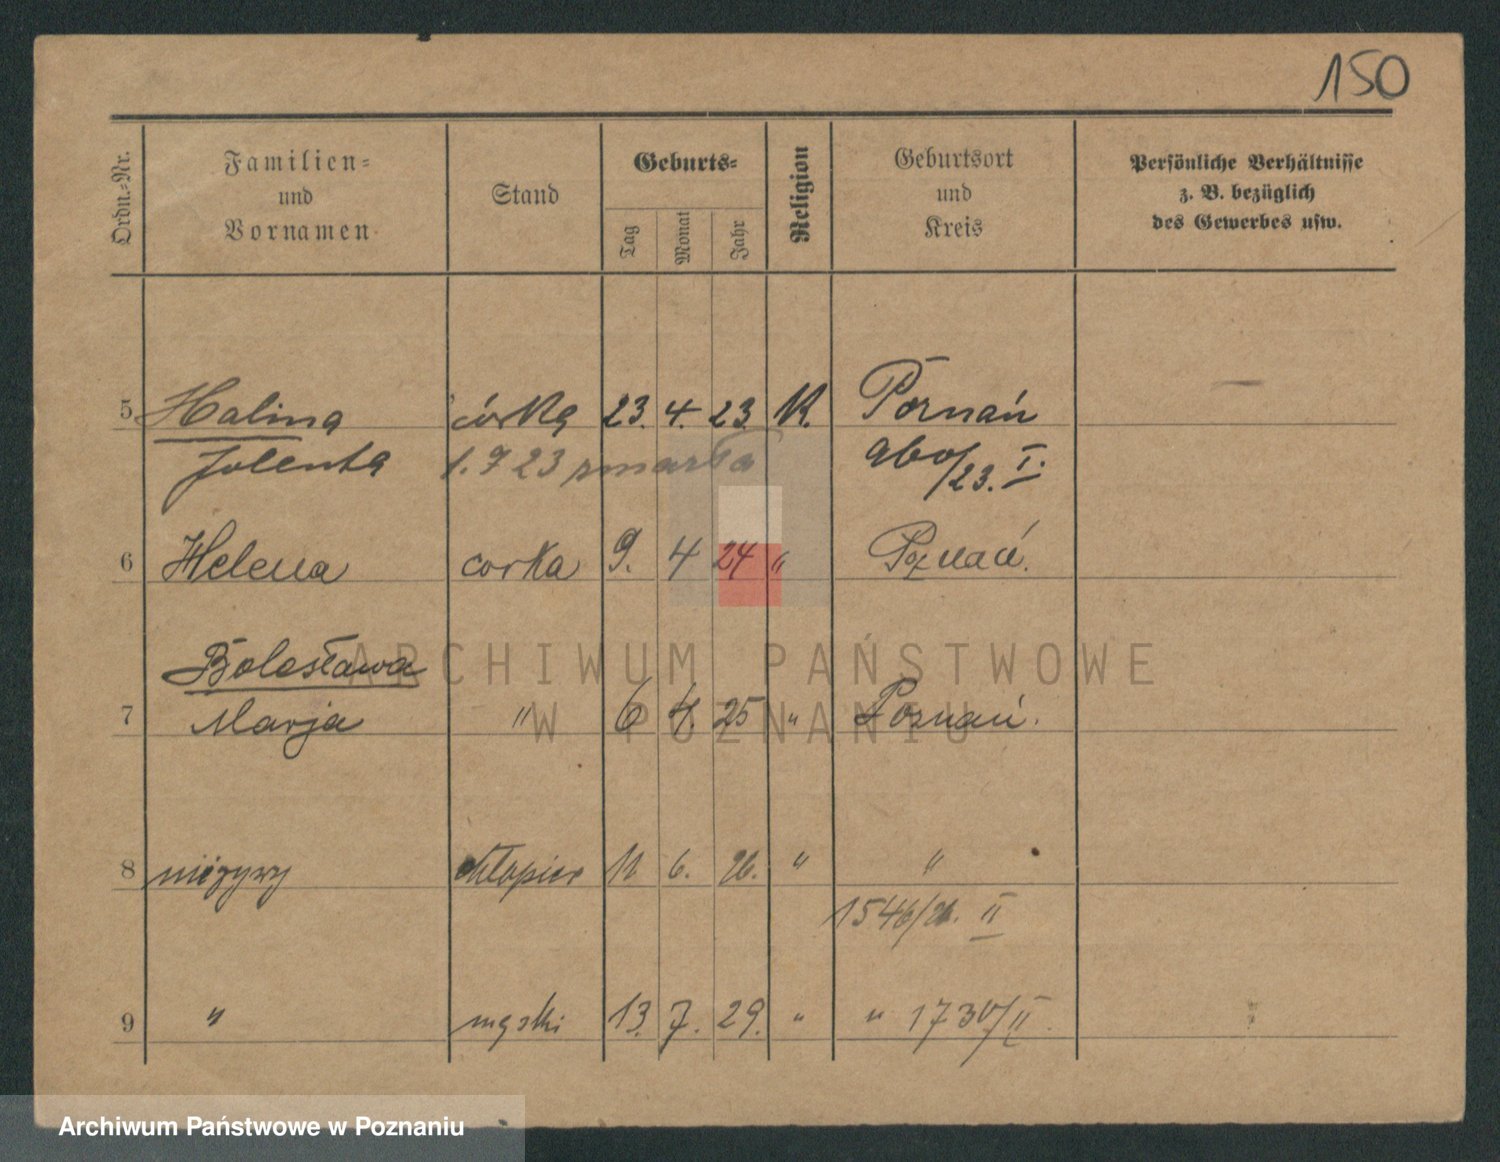 150
Ordn.=Nr.
Familien=
und
Vornamen
Stand
Geburts=
Tag
Monat
Jahr
Religion
Geburtsort
und
Kreis
Persönliche Verhältnisse
z. B. bezüglich
des Gewerbes usw.
5 Halina córka 23. 4. 23. K. Poznań —
Jolenta 1. 9 23 zmarła 960/23. I.
6 Helena corka 9. 4 24 " Poznań.
Bolesława
7 Marja " 6 4. 25 " Poznań.
8 nieżywy chłopiec 11 6. 26. " "
1546/26. II
9 " męski 13. 7. 29. " " 1730/II
ARCHIWUM PAŃSTWOWE
W POZNANIU
Archiwum Państwowe w Poznaniu